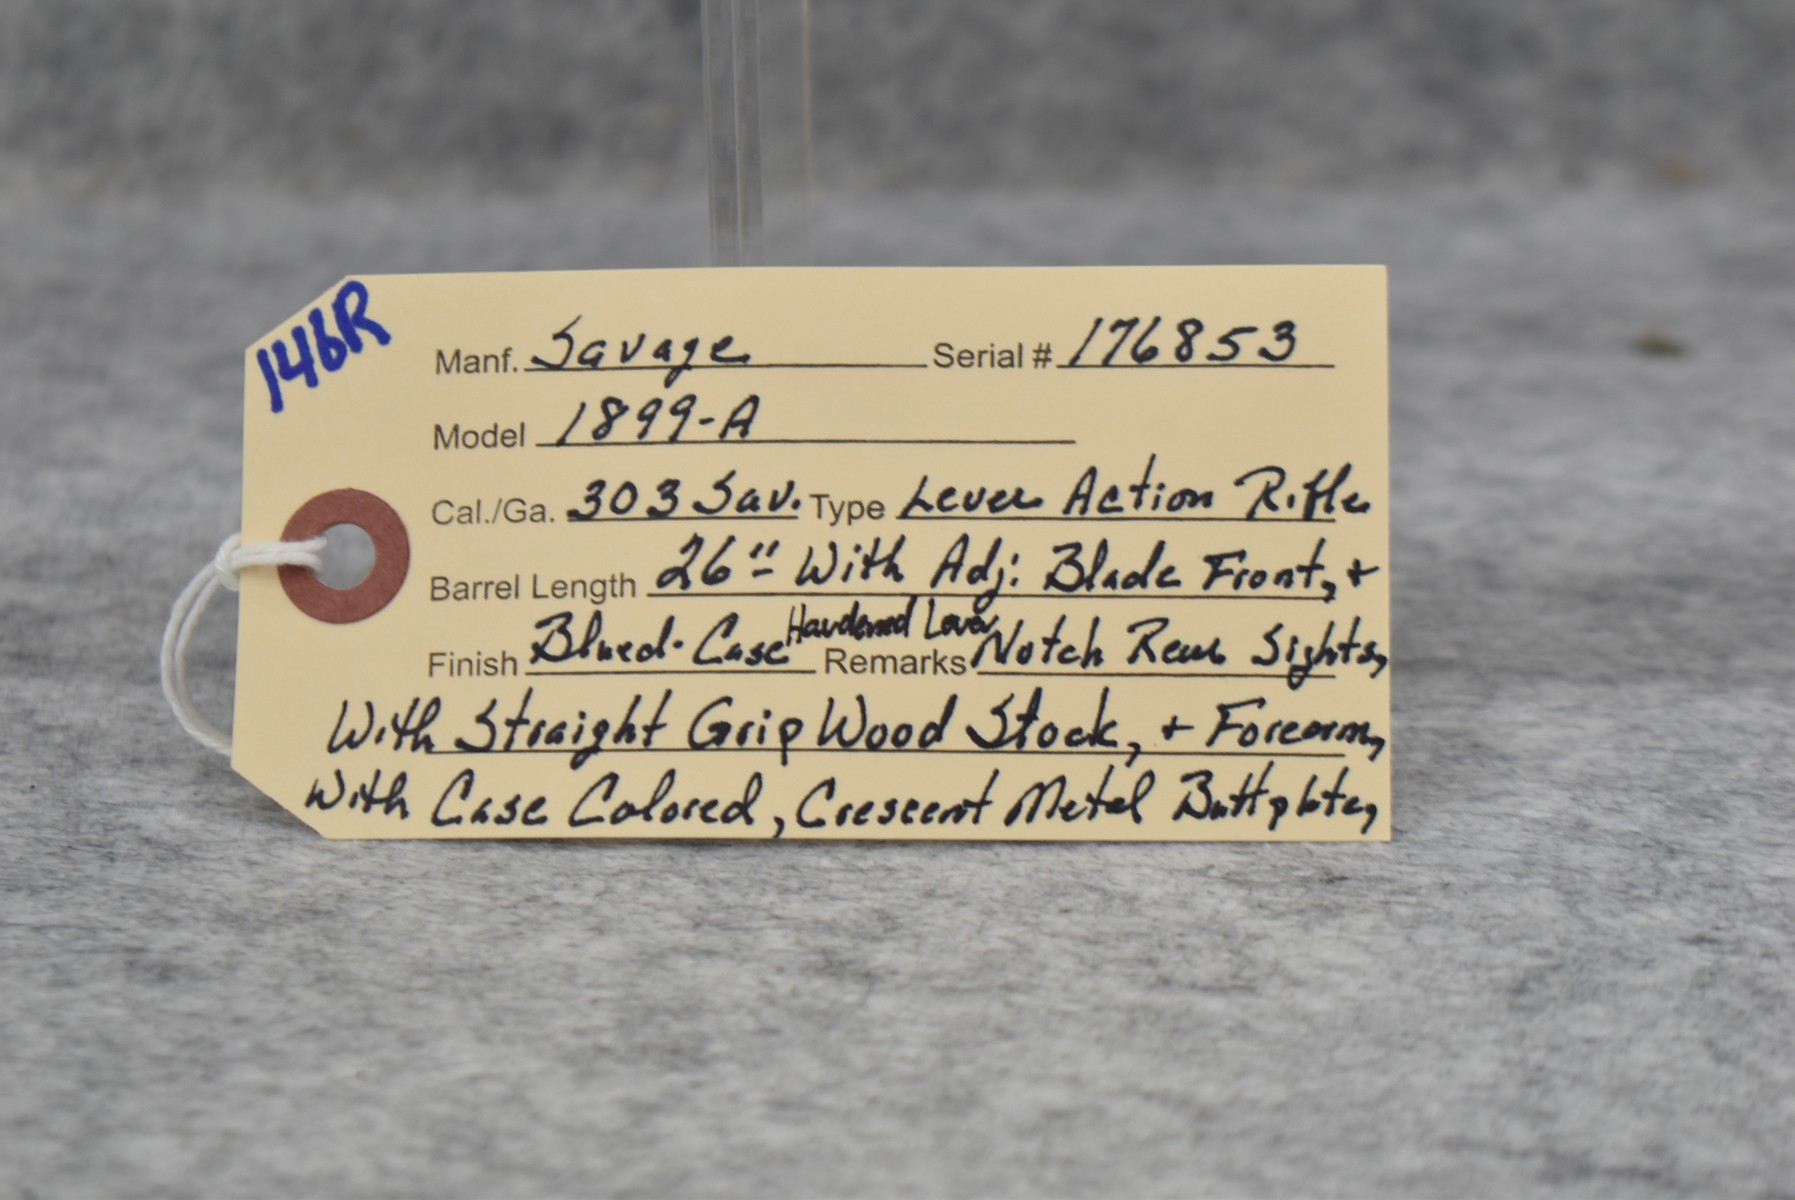 146R
Manf. Savage Serial # 176853
Model 1899-A
Cal./Ga. 303 Sav. Type Lever Action Rifle
Barrel Length 26" With Adj: Blade Front, +
Hardened Lever
Finish Blued-Case Remarks Notch Rear Sights,
With Straight Grip Wood Stock, + Forearm,
With Case Colored, Crescent Metal Buttplate,